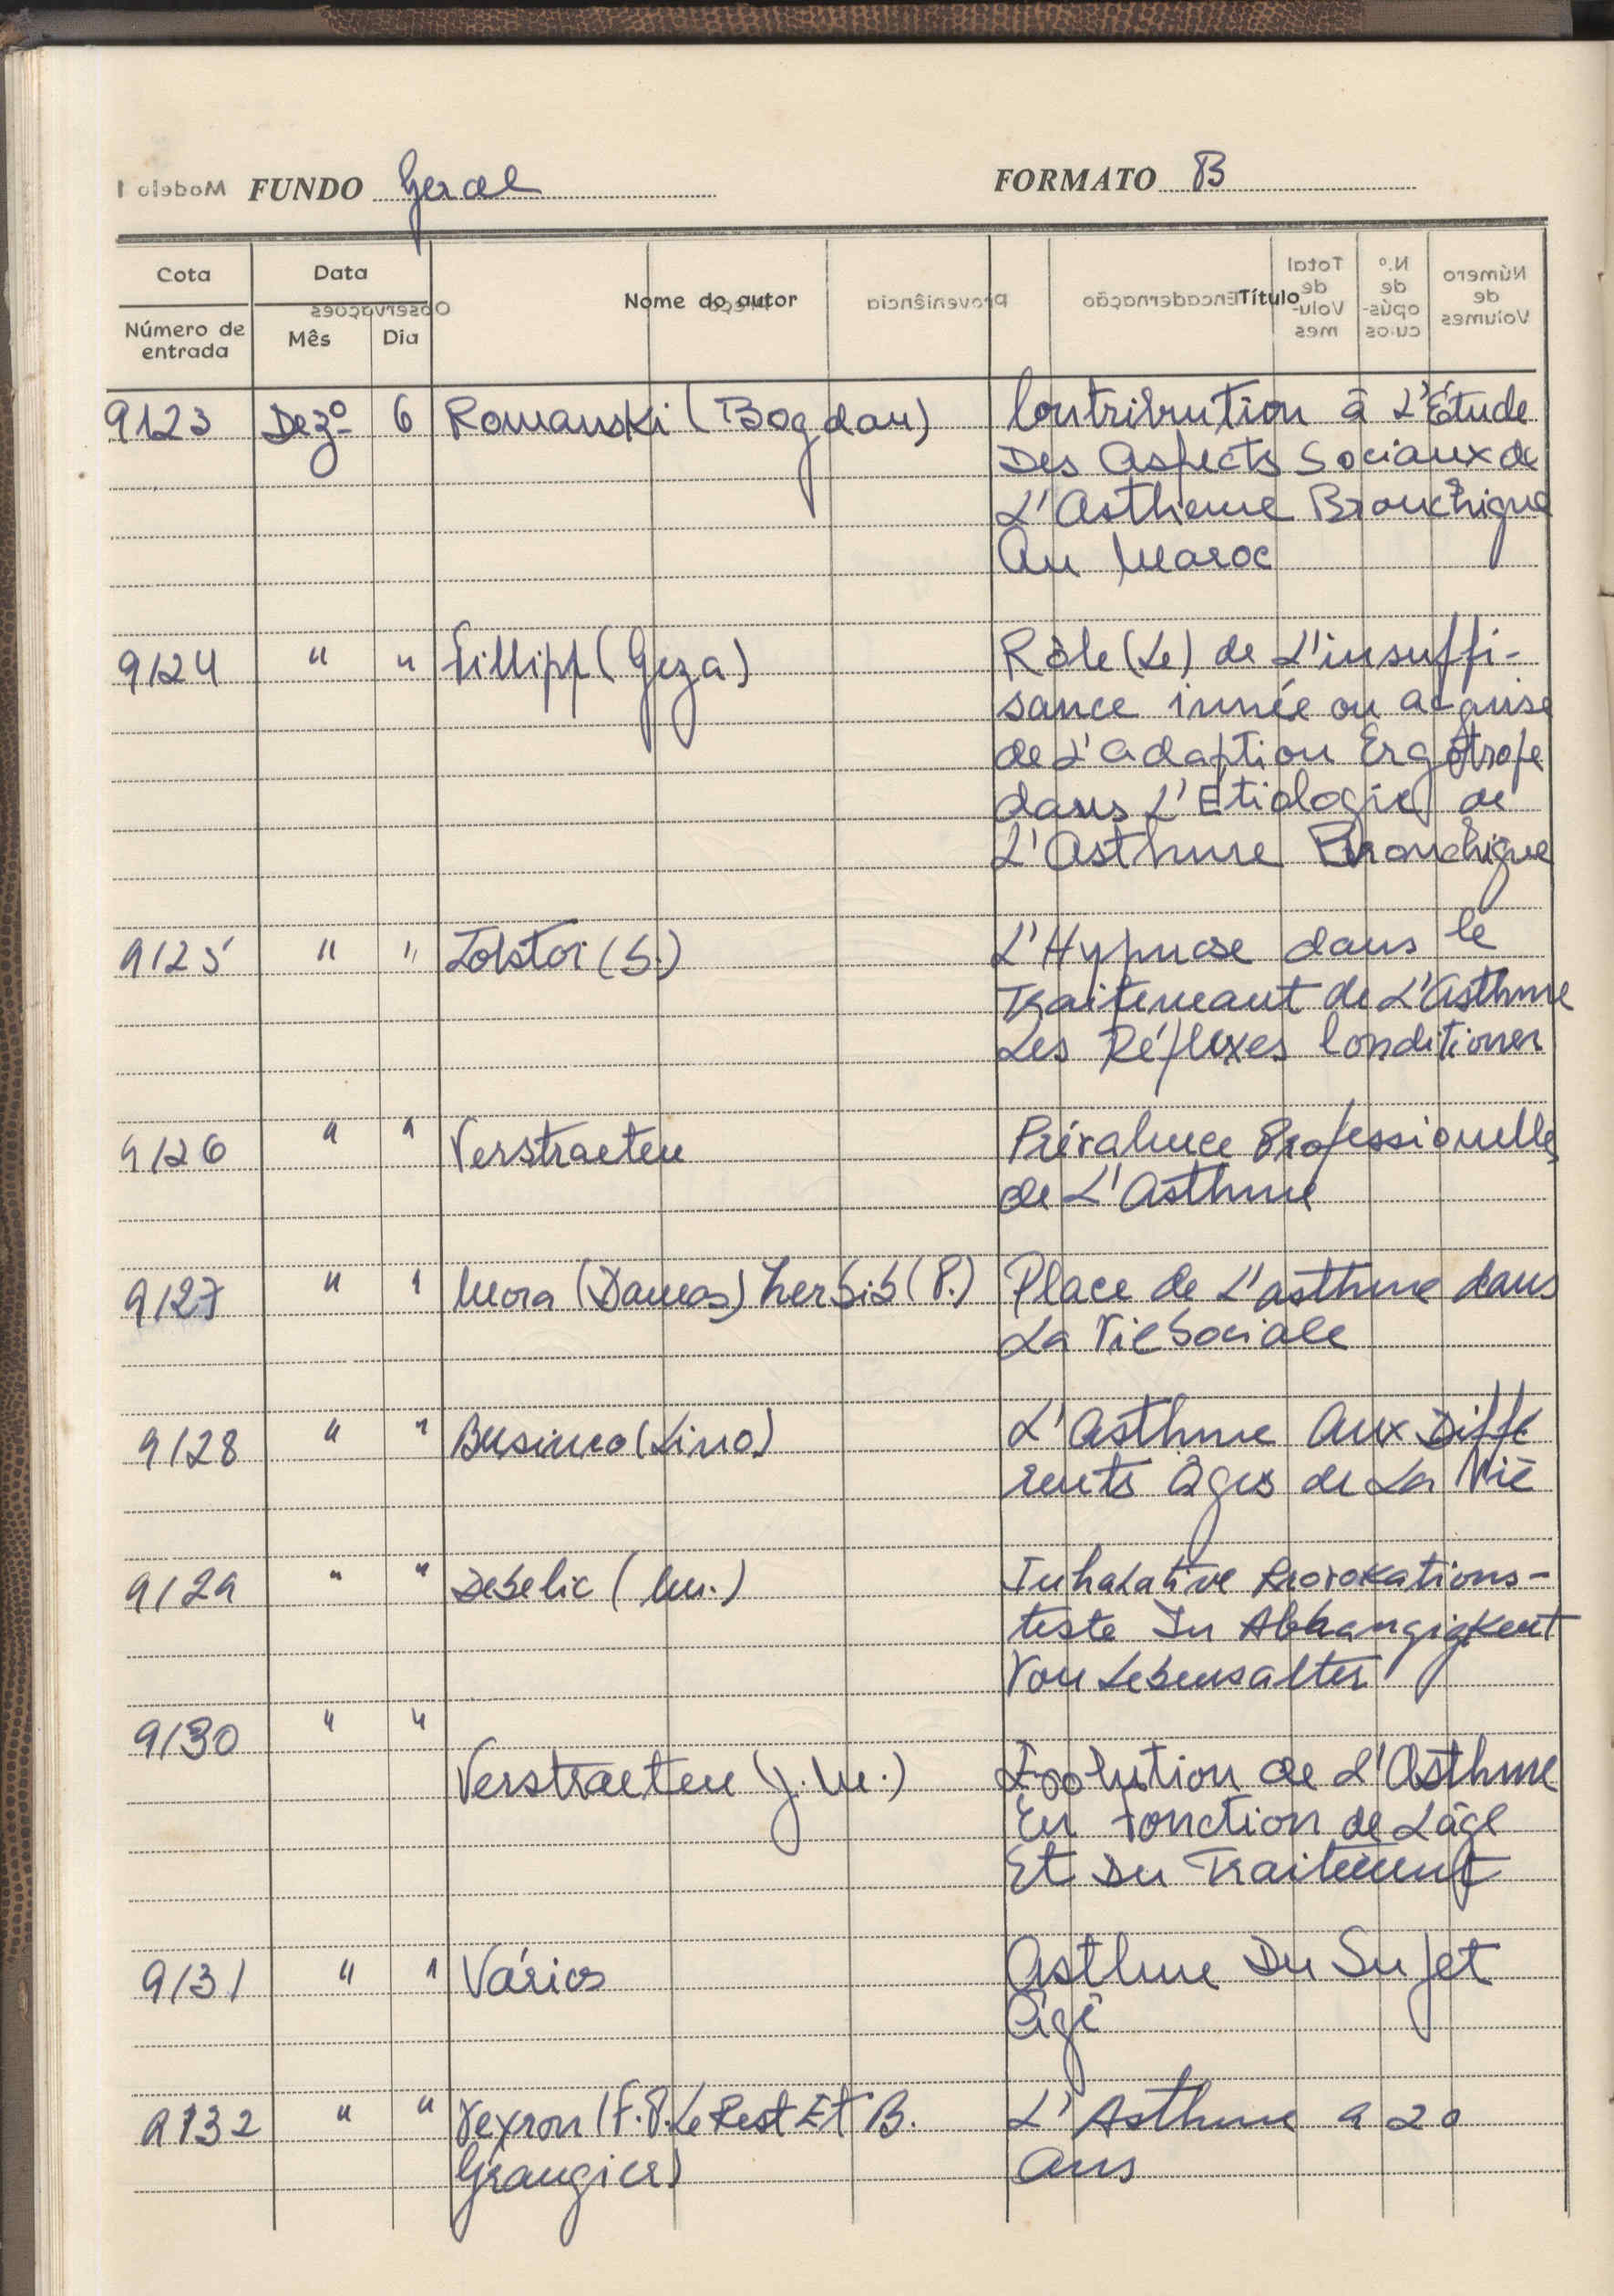 FUNDO Geral FORMATO B
Cota Data Nome do autor Título
Número de entrada Mês Dia
9123 Dezº 6 Romanski (Bogdan) Contribution à L'Étude
Des Aspects Sociaux de
L'Astheme Bronchique
Au Maroc
9124 " " Fillipp (Geza) Rôle (Le) de L'insuffi-
sance innée ou acquise
de L'adaption Ergotrope
dans L'Etiologie de
L'Asthme Bronchique
9125 " " Tolstoi (S.) L'Hypnose dans le
Traitemeant de L'Asthme
Les Réflexes Conditioner
9126 " " Verstraeten Prévalence Professionelle
de L'Asthme
9127 " " Mora (Damas) (P.) Place de L'asthme dans
La Vie Sociale
9128 " " Businco (Lino) L'Asthme Aux Diffé
rents Âges de La Vie
9129 " " Debelic (M.) Inhalative Provokations-
teste In Abhangigkeut
Von Lebensalter
9130 " "
Verstraeten (J. M.) Evolution de L'Asthme
En Fonction de Lâge
Et Du Traitement
9131 " " Vários Asthme Du Sujet
Âgé
9132 " " Veyron (F. P. Le Rest Et B. L'Asthme a 20
Grangier) Ans